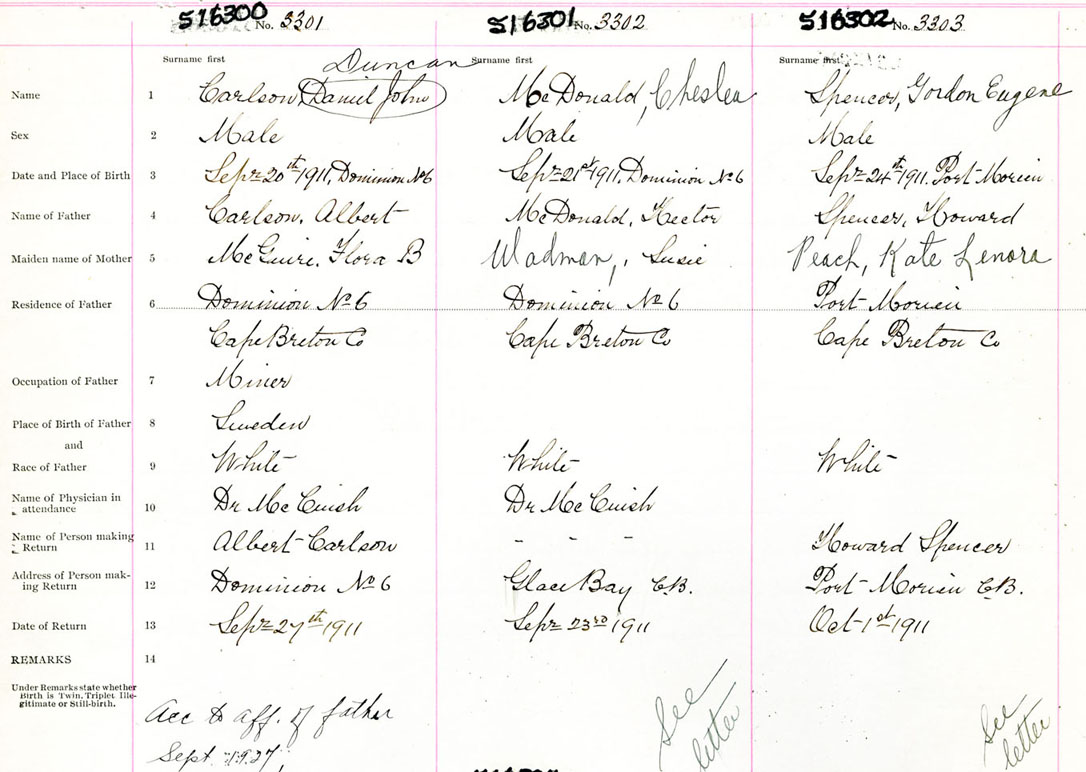 516300 No. 3301 516301 No. 3302 516302 No. 3303
Surname first Duncan Surname first Surname first
Name 1 Carlson, Daniel John McDonald, Cheslea Spencer, Gordon Eugene
Sex 2 Male Male Male
Date and Place of Birth 3 Sept 20th 1911, Dominion No 6 Sept 21st 1911, Dominion No 6 Sept 24th 1911, Port Morien
Name of Father 4 Carlson, Albert McDonald, Hector Spencer, Howard
Maiden name of Mother 5 McGuire, Flora B Wadman, Susie Peach, Kate Lenora
Residence of Father 6 Dominion No 6 Dominion No 6 Port Morien
Cape Breton Co Cape Breton Co Cape Breton Co
Occupation of Father 7 Miner
Place of Birth of Father 8 Sweden
and
Race of Father 9 White White White
Name of Physician in
attendance 10 Dr McCuish Dr McCuish
Name of Person making
Return 11 Albert Carlson - - - Howard Spencer
Address of Person mak-
ing Return 12 Dominion No 6 Glace Bay C.B. Port Morien C.B.
Date of Return 13 Sept 27th 1911 Sept 23rd 1911 Oct 1st 1911
REMARKS 14
Under Remarks state whether
Birth is Twin, Triplet Ille-
gitimate or Still-birth.
Acc to aff. of father
Sept. 1927,
See
letter
See
letter